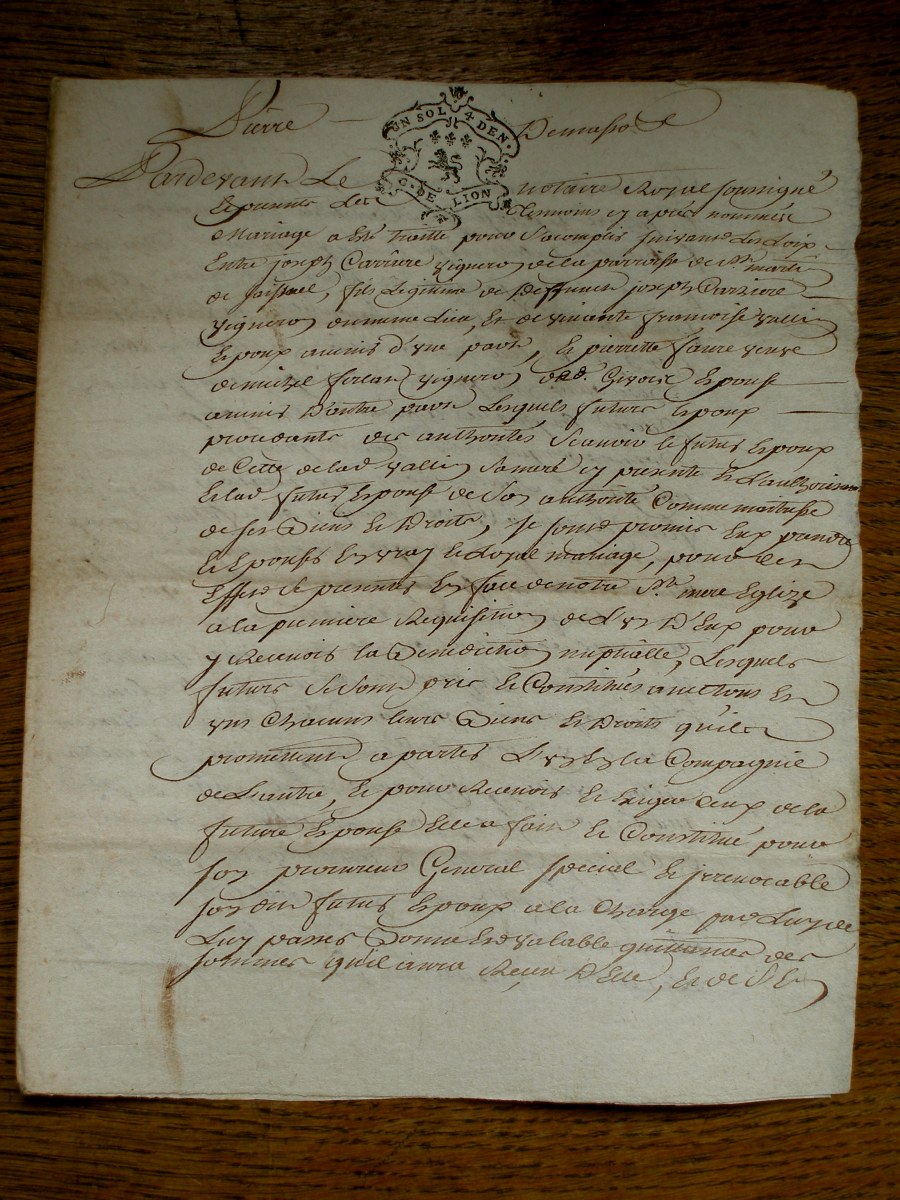 Pierre Demasso
UN SOL 4 DEN.
G. DE LION
Pardevant Le notaire Royal soussigné
Et presents les temoins cy apres nommés
Mariage a Esté traitté pour S'acomplir suivant Les Loix
Entre joseph Carriere vigneron de la parroisse de St. martin
de , fils Legitime de deffunct joseph Carriere
vigneron du meme Lieu, Et de vivante francoise vallin
Epoux avenir d'vne part, Et pierrette faure veuve
de michel vigneron Givors Epouse
avenir D'autre part Lesquels futurs Epoux
procedants des authorités Scavoir le futur Epoux
de Cette de lad vallin Sa mere cy presente Et L'authorisant
Et lad future Epouse de Son authorité Comme maitresse
de ses Biens Et Droits, se sont promis Eux prendre
Et Epouser En vray Et Loyal mariage, pour Cet
Effet Se presenter En face de notre Ste. mere Eglize
a la premiere Requisition de L'vn D'Eux pour
y Recevoir la Benediction nuptialle, Lesquels
futurs Se Sont pris Et Constitués avec tous Et
vns Chacuns leurs Biens Et Droits qu'ils
promettent aporter L'vn En la Compagnie
de L'autre, Et pour Recevoir Et Exiger Ceux de la
future Epouse Elle a fait Et Constitué pour
son procureur General special Et jrrevocable
son dit futur Epoux a la Charge par Luy de
Luy passer Bonne Et valable quittance des
sommes qu'il aura Reçu D'Elle, Et de S'En